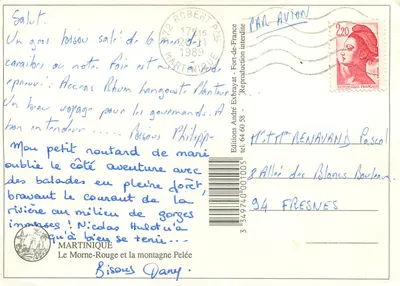 Salut.
Un gros bisou salé de 6 mer des
caraïbes où notre foie est mis à rude
épreuve : Accras Rhum Langouste Planteur
Un beau voyage pour les gourmands. A
bon entendeur .... Bisous Philippe
Mon petit routard de mari
oublie le côté aventure avec
des balades en pleine forêt,
bravant le courant de la
rivière au milieu de gorges
immenses ! Nicolas Hulot n'a
qu'à bien se tenir...
Bisous Dany.
MARTINIQUE
Le Morne-Rouge et la montagne Pelée
Editions André Exbrayat - Fort-de-France
tel. 64 60 58 - Reproduction interdite
3 349740 001005
972 ROBERT P.
1989
MARTINIQUE
PAR AVION
2,20
Mr et Mme BENAVAND Pascal
8 Allée des Blancs Bouleaux
94 FRESNES